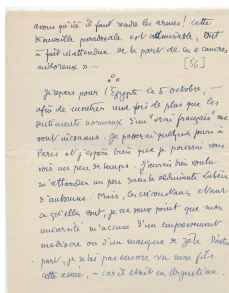 avons qu'ici il faut rendre les armes! Cette
trouvaille paradoxale est admirable, tout
à fait inattendue de la part de ces "cancres
[56]
Je repars pour l'Égypte le 5 octobre, —
afin de montrer une fois de plus que les
sentiments normaux d'un "vrai français" me
sont inconnus. Je passerai quelques jours à
Paris et j'espère bien que je pourrai vous
voir un peu de temps. J'aurais bien voulu
m'attarder un peu dans la
d'automne. Mais, les circonstances étant
ce qu'elles sont, je ne veux point que mon
université m'accuse d'un empressement
médiocre ou d'un manque de zèle. D'autre
part, je n'ai pas encore vu mon fils
cette année, — car il était en Argentine.